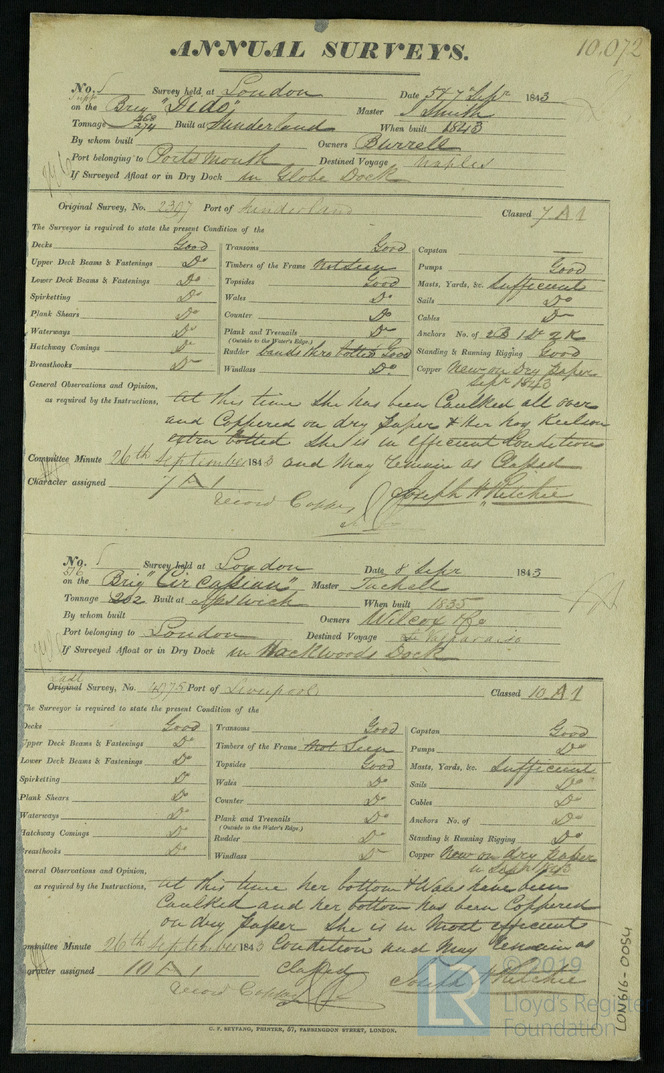 ANNUAL SURVEYS. 10.072
No. 5 Survey held at London Date 5 & 7 Sepr 1843
on the Brig "Dido" Master Smith
Tonnage 274 Built at Sunderland When built 1843
By whom built Owners Burrell
Port belonging to Portsmouth Destined Voyage Naples
If Surveyed Afloat or in Dry Dock in Globe Dock
Original Survey, No. 2397 Port of Sunderland Classed 7 A 1
The Surveyor is required to state the present Condition of the
Decks Good Transoms Good Capstan
Upper Deck Beams & Fastenings Do Timbers of the Frame Not Seen Pumps Good
Lower Deck Beams & Fastenings Do Topsides Good Masts, Yards, &c. Sufficient
Spirketting Do Wales Do Sails Do
Plank Shears Do Counter Do Cables Do
Waterways Do Plank and Treenails Do Anchors No. of 2B 1St 2K
(Outside to the Water's Edge.)
Hatchway Comings Do Rudder bands thro bolted Good Standing & Running Rigging Good
Breasthooks Do Windlass Do Copper New on dry paper
Sepr 1843
General Observations and Opinion, At this time She has been Caulked all over
as required by the Instructions, and Coppered on dry paper & Her Keelson
extra bolted She is in efficient Condition
Committee Minute 26th September 1843 and May remain as Classed
Character assigned 7 A 1 Joseph H Ritchie
Record Copper
No. 5 Survey held at London Date 8 Sepr 1843
on the Brig "Circassian" Master Tuckell
Tonnage 202 Built at Ipswich When built 1835
By whom built Owners Wilcox & Co
Port belonging to London Destined Voyage Valparaiso
If Surveyed Afloat or in Dry Dock in Hackwoods Dock
Last
Original Survey, No. 4075 Port of Liverpool Classed 10 A 1
The Surveyor is required to state the present Condition of the
Decks Good Transoms Good Capstan Good
Upper Deck Beams & Fastenings Do Timbers of the Frame Not Seen Pumps Do
Lower Deck Beams & Fastenings Do Topsides Good Masts, Yards, &c. Sufficient
Spirketting Do Wales Do Sails Do
Plank Shears Do Counter Do Cables Do
Waterways Do Plank and Treenails Do Anchors No. of Do
(Outside to the Water's Edge.)
Hatchway Comings Do Rudder Do Standing & Running Rigging Do
Breasthooks Do Windlass Do Copper New on dry paper
in Sepr 1843
General Observations and Opinion, At this time her bottom & Wales have been
as required by the Instructions, Caulked and her bottom has been Coppered
on dry paper She is in Most efficient
Committee Minute 26th September 1843 Condition and May remain as
Character assigned 10 A 1 Classed Joseph H Ritchie
Record Copper
C. F. SEYFANG, PRINTER, 57, FARRINGDON STREET, LONDON.
LON616-0054
© 2019
LR
Lloyd's Register
Foundation